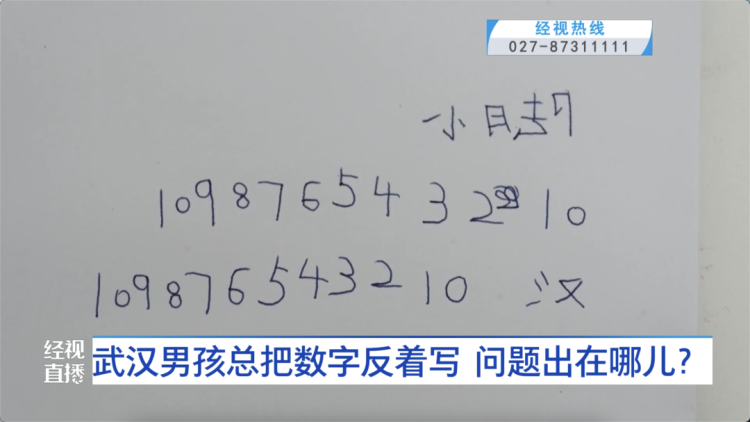 经视热线
027-87311111
小
10987654 32 10
109876543210 汉
经视
直播
武汉男孩总把数字反着写 问题出在哪儿?